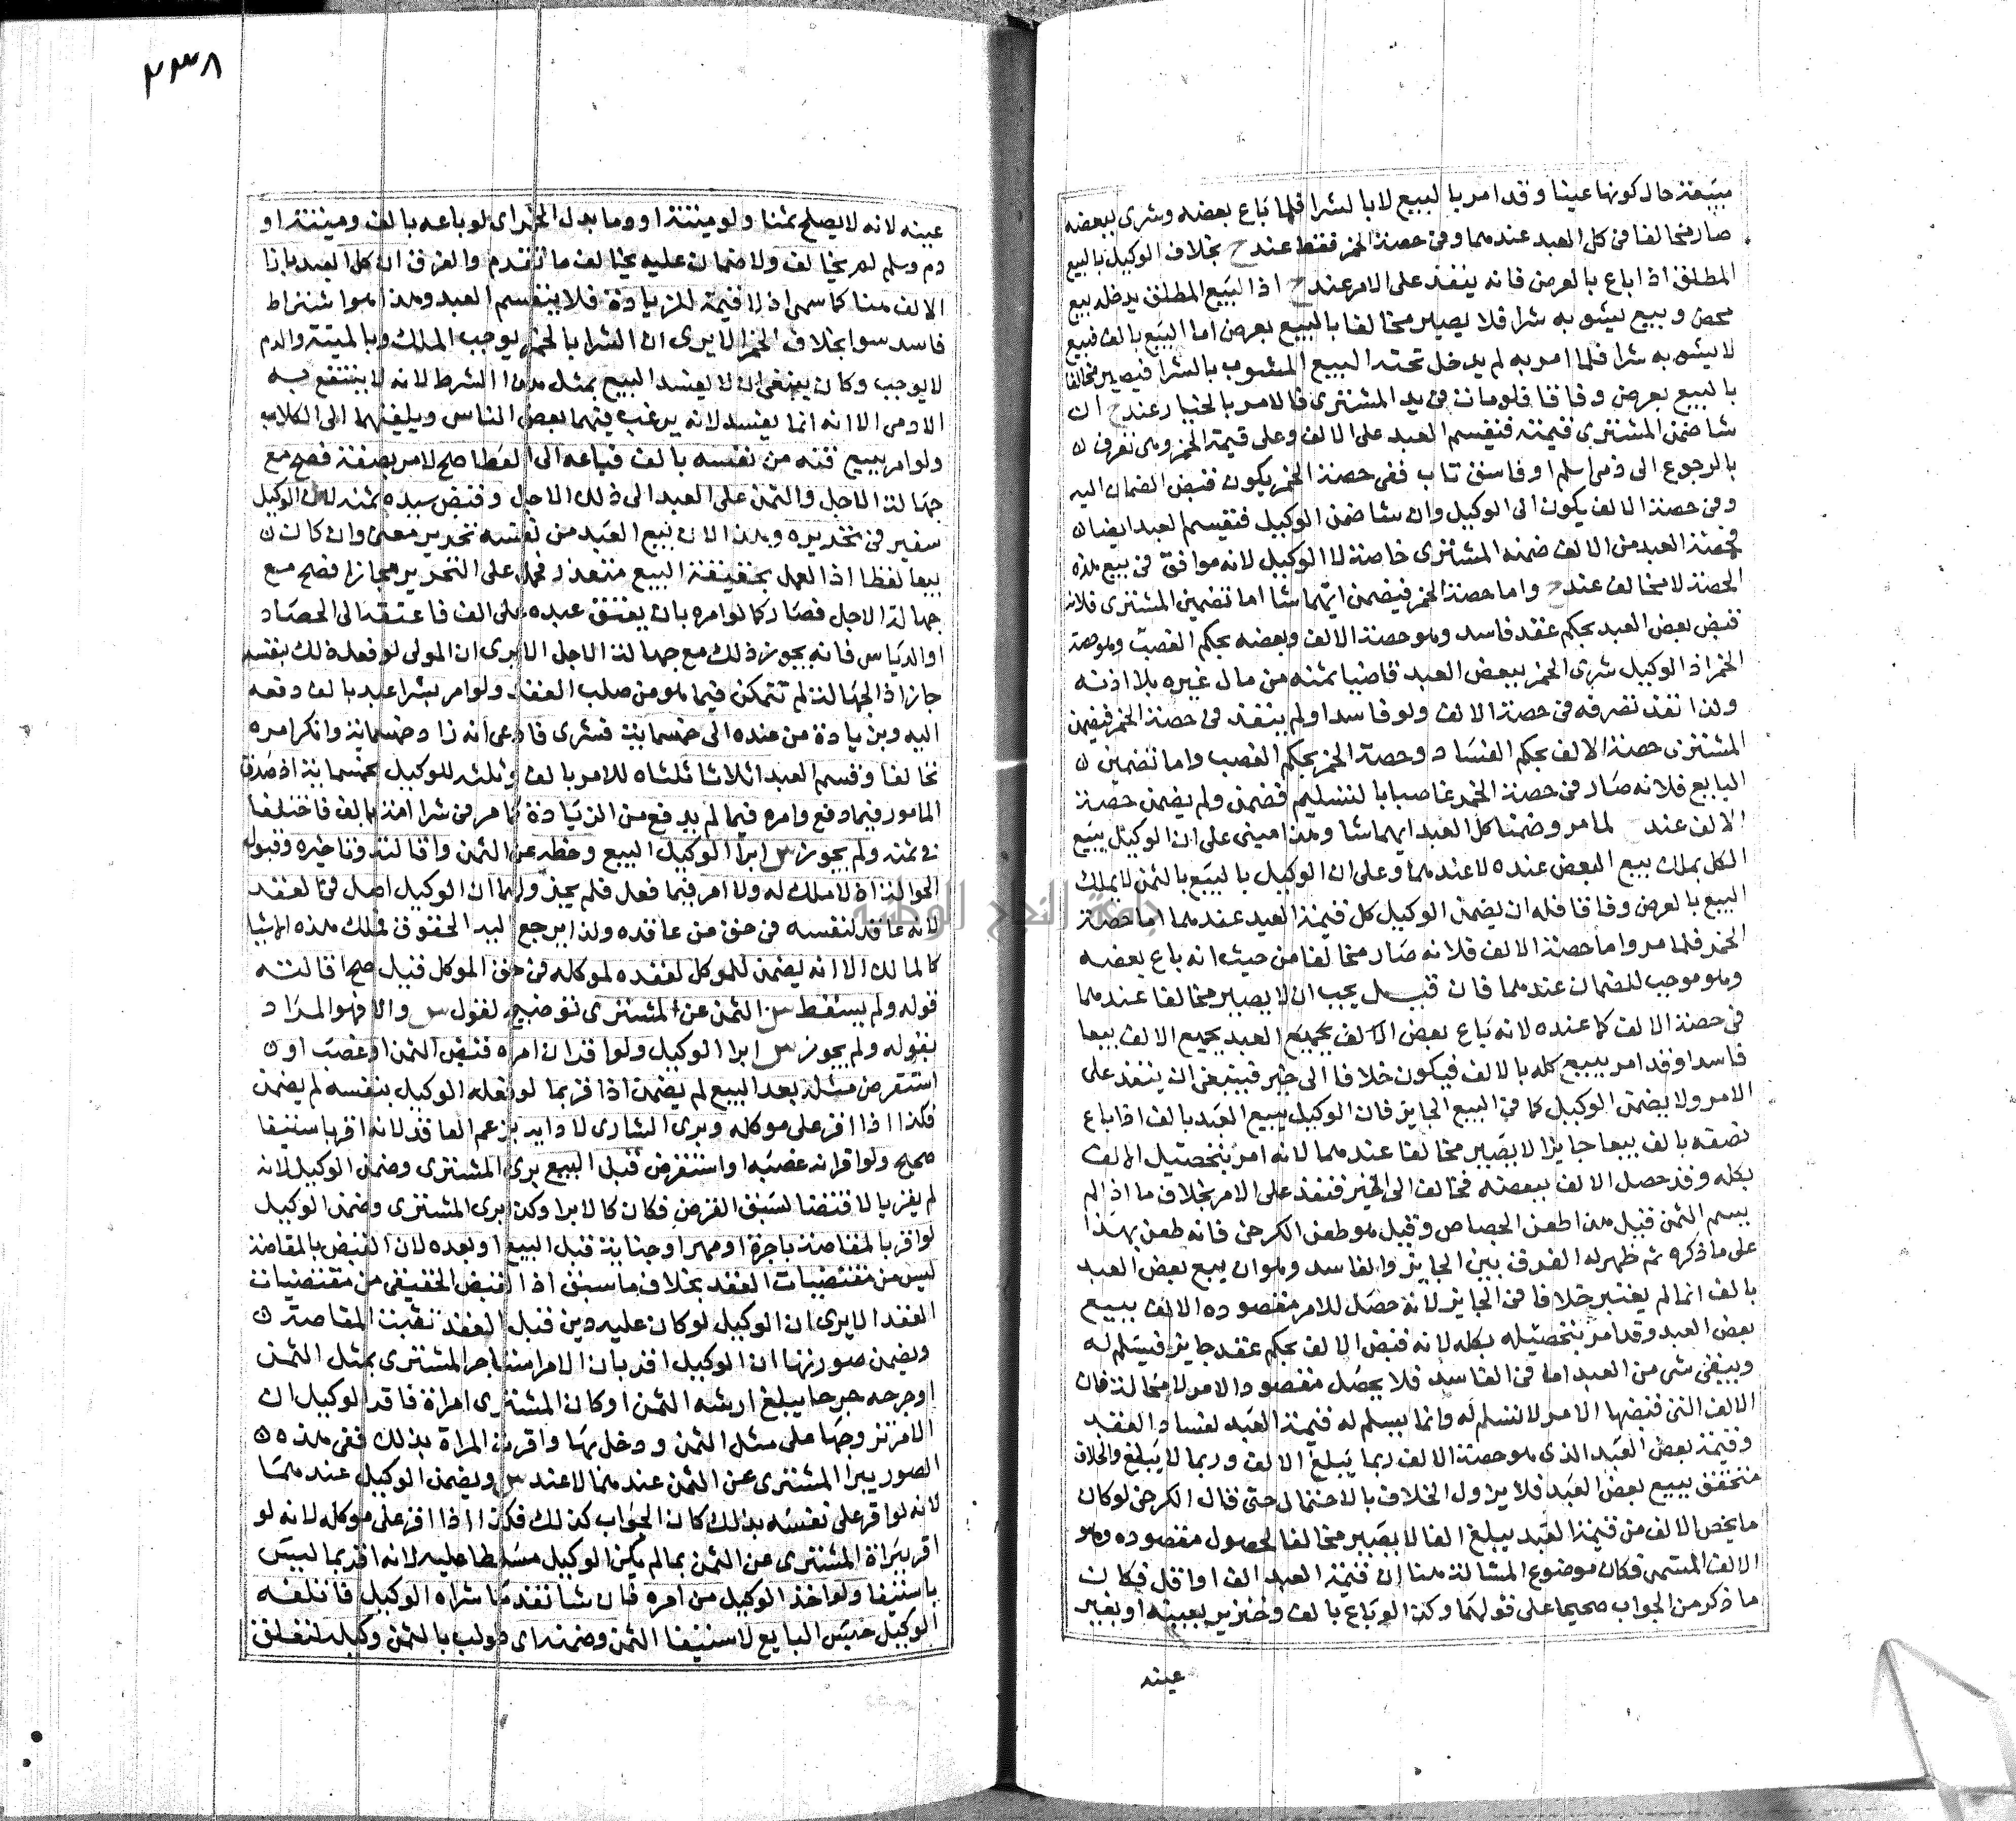 مبيعة حال كونها عينا وقد امر بالبيع لا بالشرا فلما باع بعضه وشرى ببعضه
صار مخالفا فى كل العبد عندهما وفى حصة الخمر فقط عند ح بخلاف الوكيل بالبيع
المطلق اذا باع بالعرض فانه ينفذ على الامر عند ح اذ البيع المطلق يدخله بيع
محض وبيع يشوبه شرا فلا يصير مخالفا بالبيع بعرض اما البيع بالف فبيع
لا يشوبه شرا فلما امر به لم يدخل تحته البيع المشوب بالشرا فيصير مخالفا
بالبيع بعرض وفاقا فلو مات فى يد المشترى فالامر بالخيار عند ح ان
شا ضمن المشترى قيمته فتقسم العبد على الالف وعلى قيمة الخمر وهى تعرف
بالرجوع الى ذمى اسلم او فاسق تاب ففى حصة الخمر يكون قبض الضمان اليه
وفى حصة الالف يكون الى الوكيل وان شا ضمن الوكيل فتقسم العبد ايضا
فحصة العبد من الالف ضمنه المشترى خاصة لا الوكيل لانه موافق فى بيع هذه
الحصة لا مخالف عند ح واما حصة الخمر فيضمن ايهما شا اما تضمين المشترى فلانه
قبض بعض العبد بحكم عقد فاسد وهو حصة الالف وبعضه بحكم الغصب وهو حصة
الخمر اذ الوكيل شرى الخمر ببعض العبد قاضيا ثمنه من مال غيره بلا اذنه
ولذا نفذ تصرفه فى حصة الالف ولو فاسدا ولم ينفذ فى حصة الخمر فيضمن
المشترى حصة الالف بحكم الفساد وحصة الخمر بحكم الغصب واما تضمين
البايع فلانه صار فى حصة الخمر غاصبا بالتسليم فضمن ولم يضمن حصة
الالف عند لما مر وضمنا كل العبد ايهما شا وهذا مبنى على ان الوكيل ببيع
الكل يملك بيع البعض عنده لا عندهما وعلى ان الوكيل بالبيع بالثمن لا يملك
البيع بالعرض وفاقا فله ان يضمن الوكيل كل قيمة العبد عندهما اما حصة
الخمر فلما مر واما حصة الالف فلانه صار مخالفا من حيث انه باع بعضه
وهو موجب للضمان عندهما فان قيل يجب ان لا يصير مخالفا عندهما
فى حصة الالف كما عنده لانه باع بعض الالف بجميع العبد بجميع الالف بيعا
فاسدا وقد امر ببيع كله بالالف فيكون خلافا الى خير فينبغى ان ينفذ على
الامر ولا يضمن الوكيل كما فى البيع الجايز فان الوكيل ببيع العبد بالف اذا باع
نصفه بالف بيعا جايزا لا يصير مخالفا عندهما لانه امر بتحصيل الالف
بكله وقد حصل الالف ببعضه فخالف الى الخير فنفذ على الامر بخلاف ما اذا لم
يسم الثمن قيل هذا طعن الجصاص وقيل هو طعن الكرخى فانه طعن بهذا
على ما ذكره ثم ظهر له الفرق بين الجايز والفاسد وهو ان بيع بعض العبد
بالف انما لم يعتبر خلافا فى الجايز لانه حصل للامر مقصوده الالف ببيع
بعض العبد وقد امر بتحصيله بكله لانه قبض الالف بحكم عقد جايز فيسلم له
ويبقى شى من العبد اما فى الفاسد فلا يحصل مقصود الامر لا محالة فان
الالف التى قبضها الامر لا تسلم له وانما يسلم له قيمة العبد لفساد العقد
وقيمة بعض العبد الذى هو حصة الالف ربما يبلغ الالف وربما لا يبلغ والخلاف
متحقق ببيع بعض العبد فلا يزول الخلاف بالاحتمال حتى قال الكرخى لو كان
ما يخص الالف من قيمة العبد يبلغ الفا لا يصير مخالفا لحصول مقصوده وهو
الالف المسمى فكان موضوع المسالة هنا ان قيمة العبد الف او اقل فكان
ما ذكر من الجواب صحيحا على قولهما وكذا لو باع بالف وخنزير بعينه او بغير
عينه
٢٣٨
عينه لانه لا يصلح ثمنا ولو ميتة او وما بدل الخمر اى لو باعه بالف وميتة او
دم وسلم لم يخالف ولا ضمان عليه يخالف ما تقدم والفرق ان كل العبد بازا
الالف هنا كما سمى اذ لا قيمة للزيادة فلا ينقسم العبد وهذا هو اشتراط
فاسد سوا بخلاف الخمر الا يرى ان الشرا بالخمر يوجب الملك وبالميتة والدم
لا يوجب وكان ينبغى ان لا يفسد البيع بمثل هذا الشرط لانه لا ينتفع به
الادمى الا انه انما يفسد لانه يرغب فيهما بعض الناس ويلقيهما الى الكلاب
ولو امر ببيع قنه من نفسه بالف فباعه الى العطا صح لامر بصفة فصح مع
جهالة الاجل والثمن على العبد الى ذلك الاجل وقبض سيده ثمنه لان الوكيل
سفير فى تحريره وهذا لان بيع العبد من نفسه تحرير معنى وان كان
بيعا لفظا اذ العمل بحقيقة البيع متعذر فحمل على التحرير مجازا فصح مع
جهالة الاجل فصار كما لو امره بان يعتق عبده على الف فاعتقه الى الحصاد
او الدياس فانه يجوز ذلك مع جهالة الاجل الا يرى ان المولى لو فعل ذلك بنفسه
جاز اذ الجهالة لم تتمكن فيما هو من صلب العقد ولو امر بشرا عبد بالف دفعه
اليه وبزيادة من عنده الى خمسماية فشرى فادعى انه زاد خمسماية وانكر امره
تحالفا وقسم العبد اثلاثا ثلثاه للامر بالف وثلثه للوكيل بخمسماية اذ صدق
المامور فيما دفع وامره فيما لم يدفع من الزيادة كما مر فى شرا امة بالف فاختلفا
فى ثمنه ولم يجوز س ابرا الوكيل البيع وحطه عن الثمن واقالته وتاخيره وقبول
الحوالة اذ لا ملك له ولا امر فيما فعل فلم يجز ولهما ان الوكيل اصل فى العقد
لانه عاقد لنفسه فى حق من عاقده ولذا يرجع اليه الحقوق فملك هذه الاشيا
كالمالك الا انه يضمن للموكل لعقده لموكله فى حق الموكل قيل صح اقالته
قوله ولم يسقط س الثمن عن المشترى توضيح لقول س والا فهو المراد
بقوله ولم يجوز س ابرا الوكيل ولو اقر ان امره قبض الثمن او غصب او
استقرض مثله بعد البيع لم يضمن اذ اقر بما لو فعله الوكيل بنفسه لم يضمن
فكذا اذا اقر على موكله وبرى الشارى لا دايه بزعم العاقد لانه اقر باستيفا
صحيح ولو اقر انه غصبه او استقرض قبل البيع برى المشترى وضمن الوكيل لانه
لم يقر بالاقتضا لسبق القرض فكان كالابرا وكذا برى المشترى وضمن الوكيل
لو اقر بالمقاصة باجرة او مهر او جناية قبل البيع او بعده لان القبض بالمقاصة
ليس من مقتضيات العقد بخلاف ما سبق اذ القبض الحقيقى من مقتضيات
العقد الا يرى ان الوكيل لو كان عليه دين قبل العقد تثبت المقاصة
ويضمن صورتها ان الوكيل اقر بان الامر استاجر المشترى بمثل الثمن
او جرحه جرحا يبلغ ارشه الثمن او كان المشترى امراة فاقر الوكيل ان
الامر تزوجها على مثل الثمن ودخل بها واقرت المراة بذلك ففى هذه
الصور يبرا المشترى عن الثمن عندهما لا عند س ويضمن الوكيل عندهما
لانه لو اقر على نفسه بذلك كان الجواب كذلك فكذا اذا اقر على موكله لانه لو
اقر ببراة المشترى عن الثمن بما لم يكن الوكيل مسلطا عليه لانه اقر بما ليس
باستيفا ولو اخذ الوكيل من امره فان شا نقد ما شراه الوكيل فاتلفه
الوكيل حبس البايع لاستيفا الثمن وضمنه اى طولب بالثمن وكيله